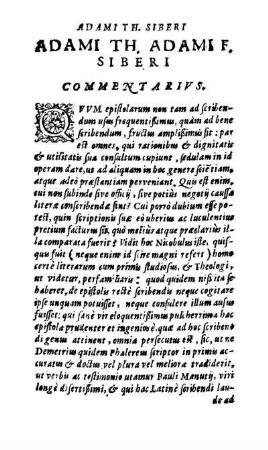 ADAMI TH. SIBERI
ADAMI TH. ADAMI F.
SIBERI
COMMENTARIVS.
QVVM epistolarum non tam ad scriben-
dum usus frequentißimus, quàm ad bene
scribendum, fructus amplißimus sit: par
est omnes, qui rationibus & dignitatis
& utilitatis suæ consultum cupiunt, sedulam in id
operam dare, us ad aliquam in hoc genere sciētiam,
atque adeò præstantiam perveniant. Quis est enim,
cui non subinde sive officij, sive potius negotij caussa
literæ conscribendæ sint? Cui porrò dubium esse po-
test, quin scriptionis suæ eò uberius ac luculentius
pretium facturus sit, quo melius atque præclarius il-
la comparata fuerit? Vidit hoc Nicobulus iste, quis-
quis fuit (neque enim id scire magni refert) homo
certè literarum cum primis studiosus, & Theologi,
ut videtur, perfamiliaris: quod quidem nisi ita se
haberet, de epistolis rectè scribendis neque cogitare
ipse unquam potuisset, neque consulere illum ausus
fuisset: qui sanè vir eloquentißimus pulcherrima hac
epistola prudenter et ingeniosè, quæ ad hoc scribendi
genus attinent, omnia persecutus est, sic, ut ne
Demetrius quidem Phalereus scriptor in primis ac-
curatus & doctus vel plura vel meliora tradiderit,
ut verbis ac testimonio utamur Pauli Manutij, viri
longè disertißimi, & qui hac Latinè scribendi lau-
de ad